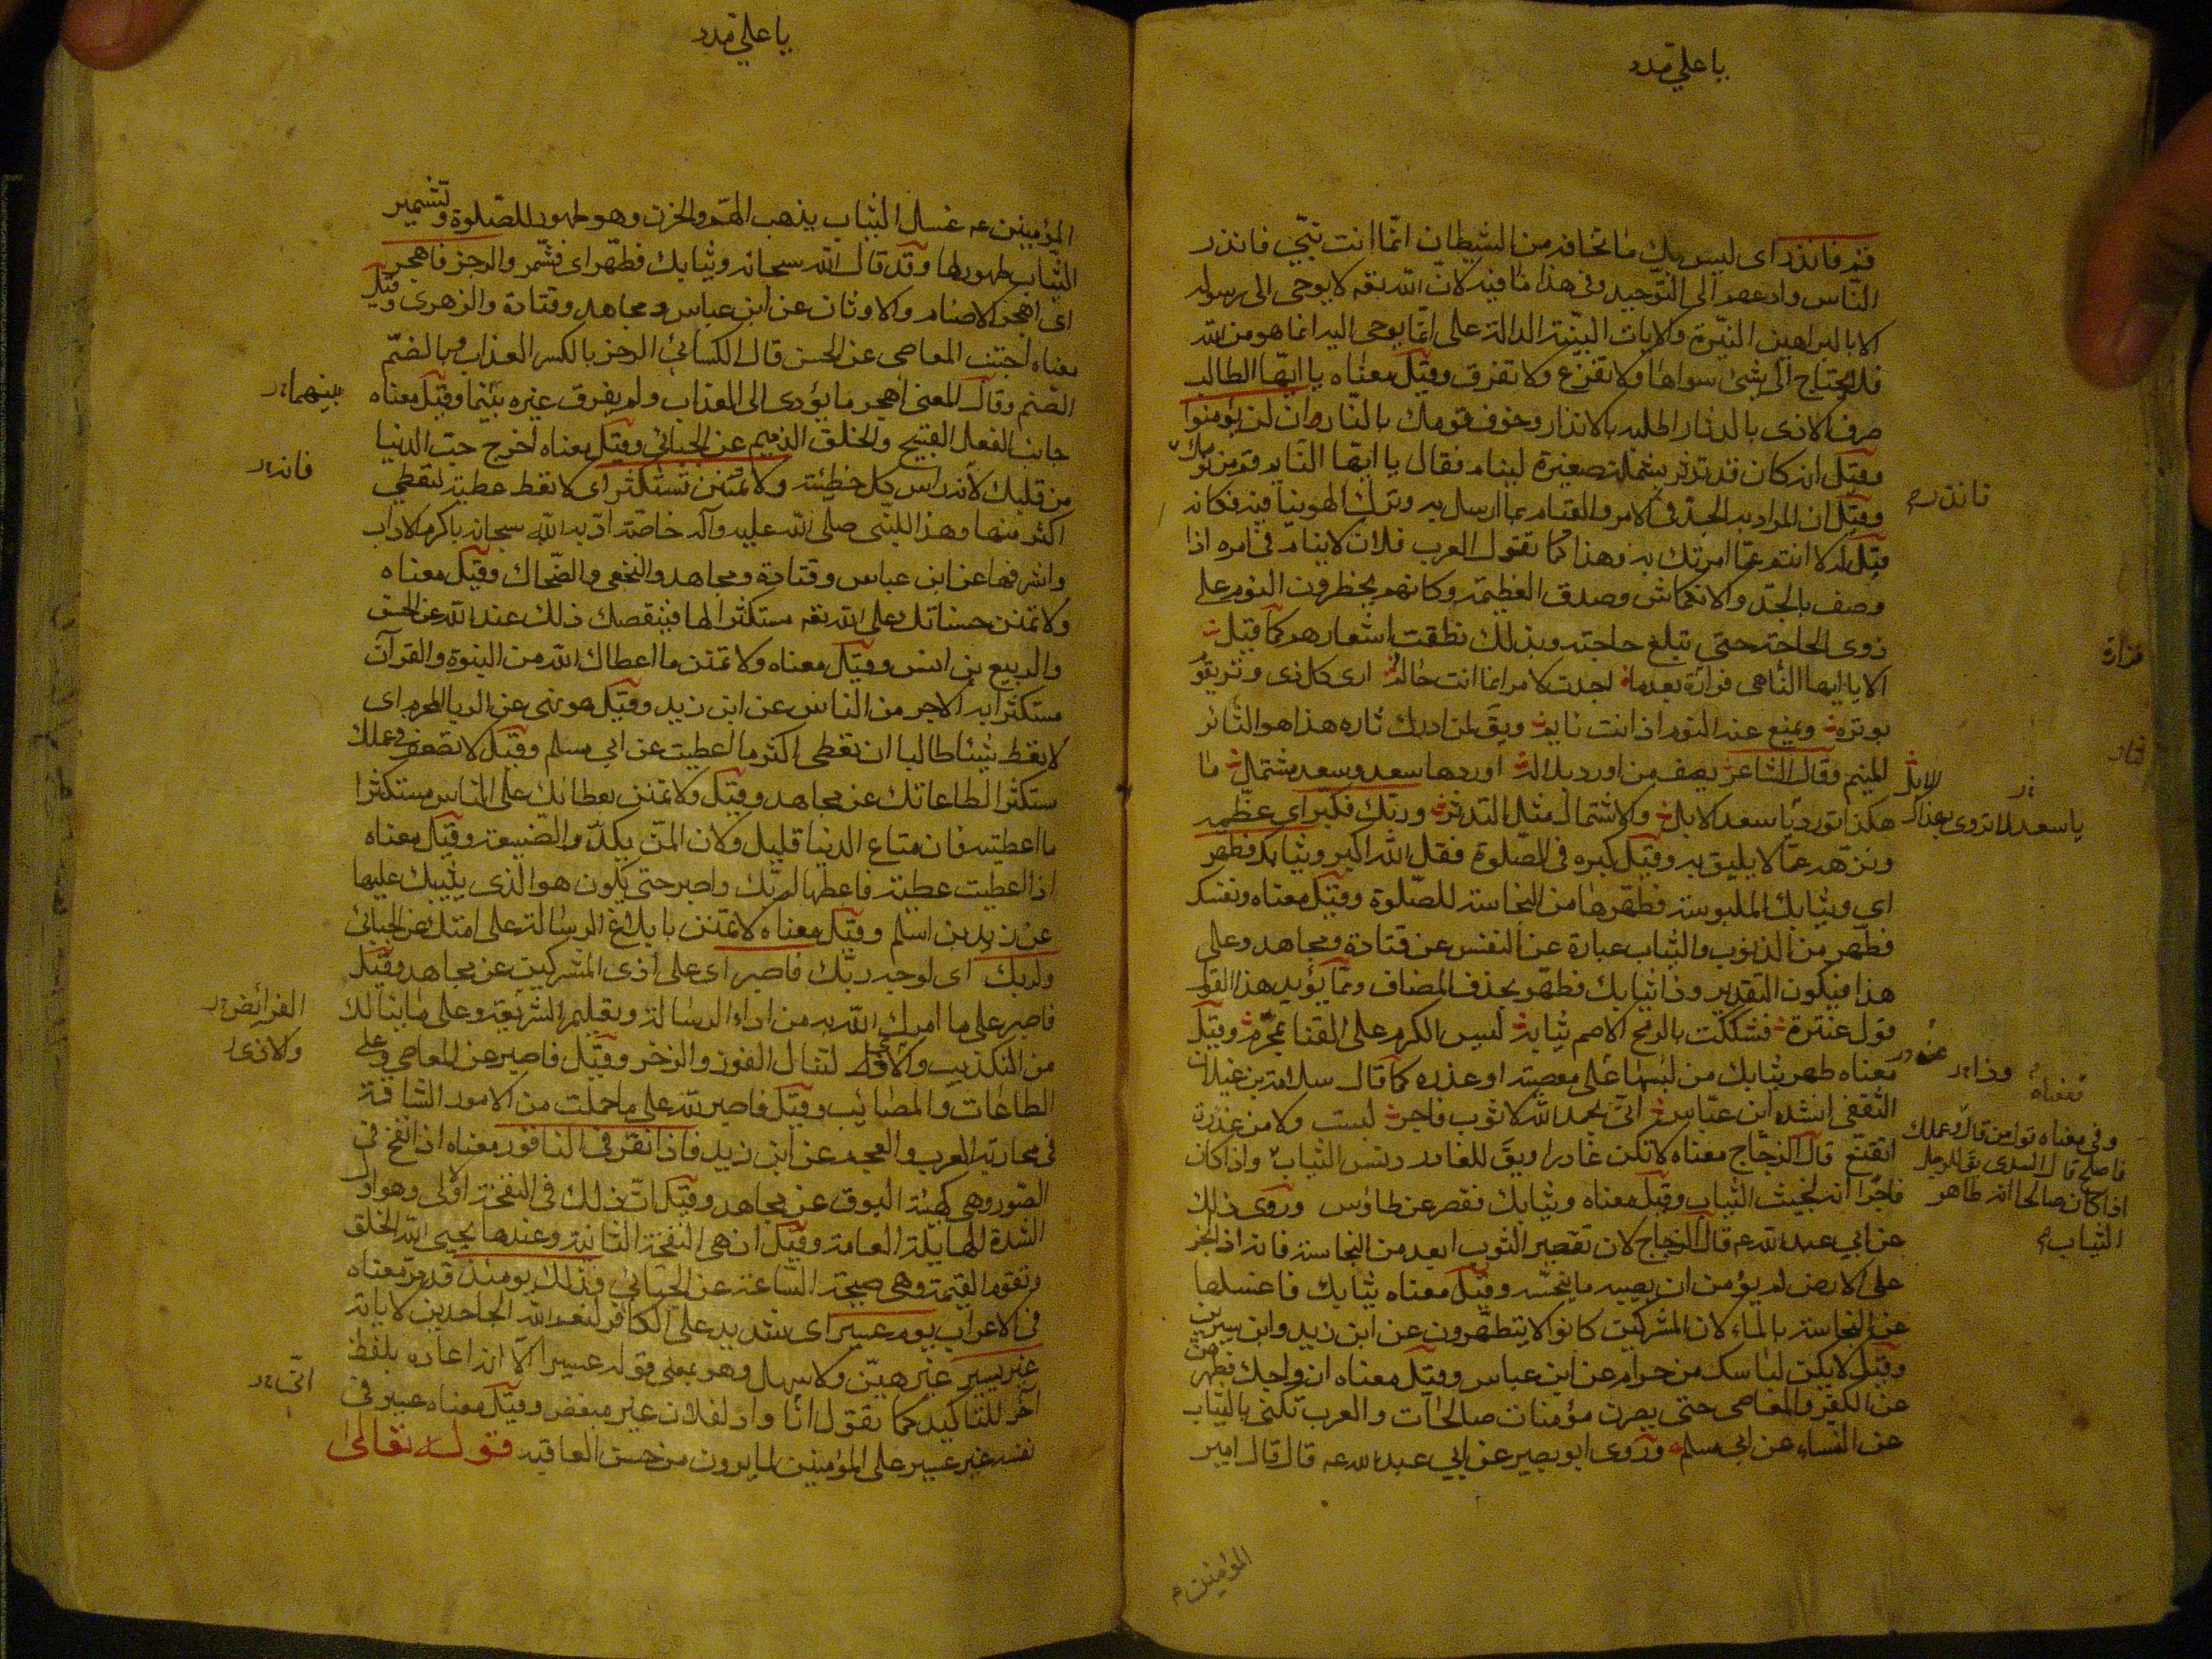 يا علي مدد
قم فانذر اى ليس بك ما تخافه من الشيطان انما انت نبي فانذر
الناس وادعهم الى التوحيد وفي هذا ما فيه لان الله تعه لا يوحى الى رسوله
الا بالبراهين النيرة والايات البينة الدالة على انما يوحى اليه انما هو من الله
فلا يحتاج الى شئ سواها ولا يفزع ولا يفرق وقيل معناه يا ايها الطالب
صرف الاذى بالدثار اطلبه بالانذار وخوف قومك بالنار وان لن يؤمنوا
وقيل انه كان قد تدثر بشملة صغيرة لينام فقال يا ايها النايم قم من نومك
فانذر
وقيل ان المراد به الجد في الامر والقيام بما ارسل به وترك الهوينا فيه فكانه
قيل له لا تنم عما امرتك به وهذا كما تقول العرب فلان لا ينام في امره اذا
وصف بالجد والانكماش وصدق العظيمة وكانهم يحظرون النوم على
ذوى الحاجة حتى تبلغ حاجته وبذلك نطقت اشعارهم كما قيل
الا يا ايها الناهى فزارة بعدما اجدت لامر انما انت حالم ارى كل ذى وتر يقو
فزارة
بوتره ويمنع عنه النوم اذ انت نايم ويق لمن ادرك ثاره هذا هو الثائر
المنيم وقال الشاعر يصف من اورد بدالة اوردها سعد وسعد مشتمل ما
الابل
يا سعد لا تروى بهذاك
هكذا تورد يا سعد الابل والاشتمال مثل التدثر وربك فكبر اى عظمه
ونزهه عما لا يليق به وقيل كبره في الصلوة فقل الله اكبر وثيابك فطهر
اى وثيابك الملبوسة فطهرها من النجاسة للصلوة وقيل معناه ونفسك
فطهر من الذنوب والثياب عبارة عن النفس عن قتادة ومجاهد وعلى
هذا فيكون التقدير وذا ثيابك فطهر بحذف المضاف ومما يؤيد هذا القول
قول عنترة فشككت بالرمح الاصم ثيابه ليس الكرم على القنا بمحرم وقيل
معناه طهر ثيابك من لبسها على معصية او غدره كما قال سلامة بن غيلان
الثقفى انشده ابن عباس انى بحمد الله لا ثوب فاجر لبست ولا من غدرة
اتقنع قال الزجاج معناه لا تكن غادرا ويق للغادر دنس الثياب واذا كان
وفى معناه قول من قال وعملك
فاصلح قال السدى يق للرجل
اذا كان صالحا انه طاهر
الثياب
فاجرا انه لخبيث الثياب وقيل معناه وثيابك فقصر عن طاوس وروى ذلك
عن ابي عبد الله عه قال الزجاج لان تقصير الثوب ابعد من النجاسة فانه اذا انجر
على الارض لم يؤمن ان يصيبه ما ينجسه وقيل معناه ثيابك فاغسلها
عن النجاسة بالماء لان المشركين كانوا لا يتطهرون عن ابن زيد وابن سيرين
وقيل لا يكن لباسك من حرام عن ابن عباس وقيل معناه ازواجك فطهرهن
عن الكفر والمعاصى حتى يصرن مؤمنات صالحات والعرب تكنى بالثياب
عن النساء عن ابى مسلم وروى ابو بصير عن ابي عبد الله عه قال قال امير
المؤمنين
يا علي مدد
المؤمنين عه غسل الثياب يذهب الهم والحزن وهو طهور للصلوة وتشمير
الثياب طهور لها وقد قال الله سبحانه وثيابك فطهر اى فشمر والرجز فاهجر
اى اهجر الاصنام والاوثان عن ابن عباس ومجاهد وقتادة والزهرى وقيل
معناه اجتنب المعاصى عن الحسن قال الكسائى الرجز بالكسر العذاب وبالضم
الصنم وقال المعنى اهجر ما يؤدى الى العذاب ولم يفرق غيره بينما وقيل معناه
بينهما
جانب الفعل القبيح والخلق الذميم عن الجبائى وقيل معناه اخرج حب الدنيا
من قلبك لانه راس كل خطيئة ولا تمنن تستكثر اى لا تعط عطية لتعطى
فانه
اكثر منها وهذا للنبى صلى الله عليه وآله خاصة ادبه الله سبحانه باكرم الاداب
واشرفها عن ابن عباس وقتادة ومجاهد والنخعى والضحاك وقيل معناه
ولا تمنن حسناتك على الله تعه مستكثرا لها فينقصك ذلك عند الله عن الحسن
والربيع بن انس وقيل معناه ولا تمنن ما اعطاك الله من النبوة والقرآن
مستكثرا به الاجر من الناس عن ابن زيد وقيل هو نهى عن الربا المحرم اى
لا تعط شيئا طالبا ان تعطى اكثر مما اعطيت عن ابي مسلم وقيل لا تضعف في عملك
مستكثرا لطاعاتك عن مجاهد وقيل ولا تمنن بعطائك على الناس مستكثرا
ما اعطيته فان متاع الدنيا قليل ولان المن يكدر الصنيعة وقيل معناه
اذا اعطيت عطية فاعطها لربك واصبر حتى يكون هو الذى يثيبك عليها
عن زيد بن اسلم وقيل معناه لا تمنن بابلاغ الرسالة على امتك عن الجبائى
ولربك اى لوجه ربك فاصبر اى على اذى المشركين عن مجاهد وقيل
فاصبر على ما امرك الله به من اداء الرسالة وتعليم الشريعة وعلى ما ينالك
الفرائض
من التكذيب والاذى لتنال الفوز والذخر وقيل فاصبر عن المعاصى وعلى
والاذى
الطاعات والمصائب وقيل فاصبر لله على ما حملت من الامور الشاقة
في محاربة العرب والعجم عن ابن زيد فاذا نقر في الناقور معناه اذا نفخ في
الصور وهى كهيئة البوق عن مجاهد وقيل ان ذلك في النفخة الاولى وهو اول
الشدة الهايلة العامة وقيل انه هى النفخة الثانية وعندها يحيى الله الخلق
وتقوم القيمة وهى صيحة الساعة عن الجبائى فذلك يومئذ قد مر معناه
في الاعراب يوم عسير اى شديد على الكافر لنعم الله الجاحدين لاياته
غير يسير غير هين ولا سهل وهو بمعنى قوله عسير الا انه اعاده بلفظ
آخر للتاكيد كما تقول انا واد لفلان غير مبغض وقيل معناه عسير في
انى
نفسه غير عسير على المؤمنين لما يرون من حسن العاقبة قوله تعالى